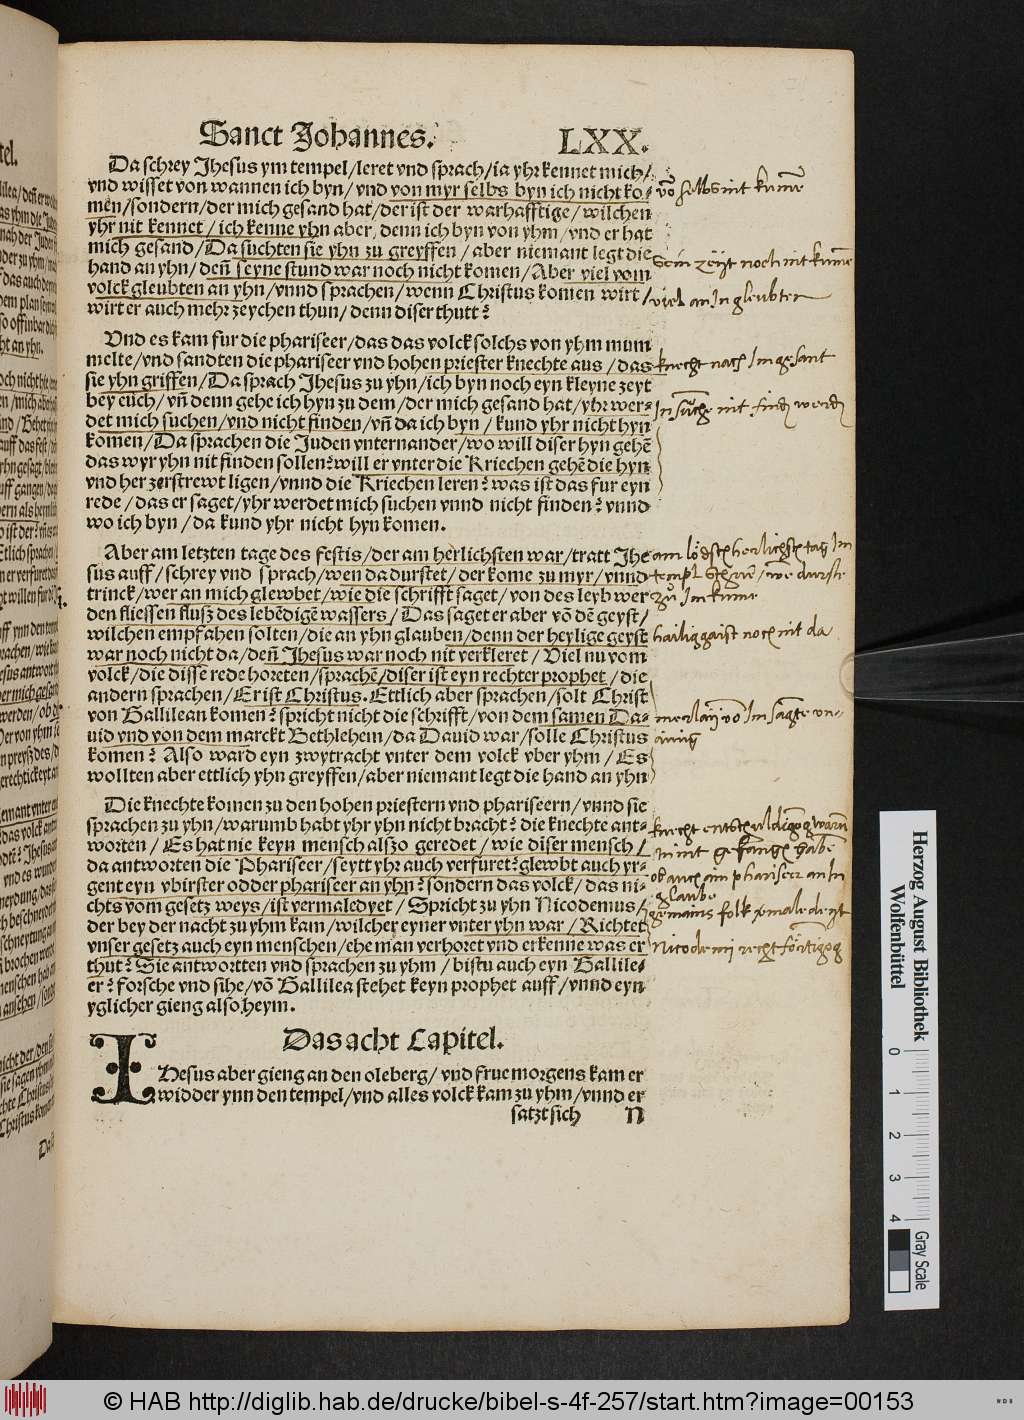 Sanct Johannes. LXX.
Da schrey Jhesus ym tempel/leret vnd sprach/ia yhr kennet mich/
vnd wisset von wannen ich byn/ vnd von myr selbs byn ich nicht ko-
men/sondern/der mich gesand hat/der ist der warhafftige/wilchen
yhr nit kennet/ich kenne yhn aber, denn ich byn von yhm/vnd er hat
mich gesand/Da suchten sie yhn zu greyffen/ aber niemant legt die
hand an yhn/ deñ seyne stund war noch nicht komen/Aber viel vom
volck gleubten an yhn/vnnd sprachen/wenn Christus komen wirt/
wirt er auch mehr zeychen thun/denn diser thutt?
Vnd es kam fur die phariseer/das das volck solchs von yhm mum
melte/vnd sandten die phariseer vnd hohen priester knechte aus/das
sie yhn griffen/Da sprach Jhesus zu yhn/ich byn noch eyn kleyne zeyt
bey euch/vñ denn gehe ich hyn zu dem/der mich gesand hat/yhr wer-
det mich suchen/vnd nicht finden/vñ da ich byn/kund yhr nicht hyn
komen/Da sprachen die Juden vnternander/wo will diser hyn gehẽ
das wyr yhn nit finden sollen?will er vnter die Kriechen gehẽ die hyn
vnd her zerstrewt ligen/vnnd die Kriechen leren? was ist das fur eyn
rede/das er saget/yhr werdet mich suchen vnnd nicht finden? vnnd
wo ich byn/da kund yhr nicht hyn komen.
Aber am letzten tage des festis/der am herlichsten war/tratt Jhe
sus auff/schrey vnd sprach/wen da durstet/der kome zu myr/vnnd
trinck/wer an mich glewbet/wie die schrifft saget/von des leyb wer
den fliessen flusz des lebẽdigen wassers/Das saget er aber võ dẽ geyst/
wilchen empfahen solten/die an yhn glauben/denn der heylige geyst
war noch nicht da/deñ Jhesus war noch nit verkleret/Viel nu vom
volck/die disse rede horeten/sprachẽ/diser ist eyn rechter prophet/die
andern sprachen/Er ist Christus. Ettlich aber sprachen/solt Christ
von Gallilean komen? spricht nicht die schrifft/von dem samen Da-
uid vnd von dem marckt Bethlehem/da Dauid war/solle Christus
komen? Also ward eyn zwytracht vnter dem volck vber yhm/Es
wollten aber ettlich yhn greyffen/aber niemant legt die hand an yhn
Die knechte komen zu den hohen priestern vnd phariseern/vnnd sie
sprachen zu yhn/warumb habt yhr yhn nicht bracht? die knechte ant-
worten/Es hat nie keyn mensch alszo geredet/wie diser mensch/
da antworten die Phariseer/seytt yhr auch verfuret?glewbt auch yr-
gent eyn vbirster odder phariseer an yhn? sondern das volck/das ni-
chts vom gesetz weys/ist vermaledyet/Spricht zu yhn Nicodemus/
der bey der nacht zu yhm kam/wilcher eyner vnter yhn war/Richtet
vnser gesetz auch eyn menschen/ehe man verhoret vnd erkenne was er
thut? Sie antwortten vnd sprachen zu yhm/bistu auch eyn Gallile-
er? forsche vnd sihe/võ Gallilea stehet keyn prophet auff/vnnd eyn
yglicher gieng also heym.
Das acht Capitel.
IHesus aber gieng an den oleberg/vnd frue morgens kam er
widder ynn den tempel/vnd alles volck kam zu yhm/vnnd er
satzt sich N
viel an In gleubten
knecht nach Im gesant
hailig gaist noch nit da
Herzog August Bibliothek
Wolfenbüttel
0 1 2 3 4
Gray Scale
© HAB http://diglib.hab.de/drucke/bibel-s-4f-257/start.htm?image=00153